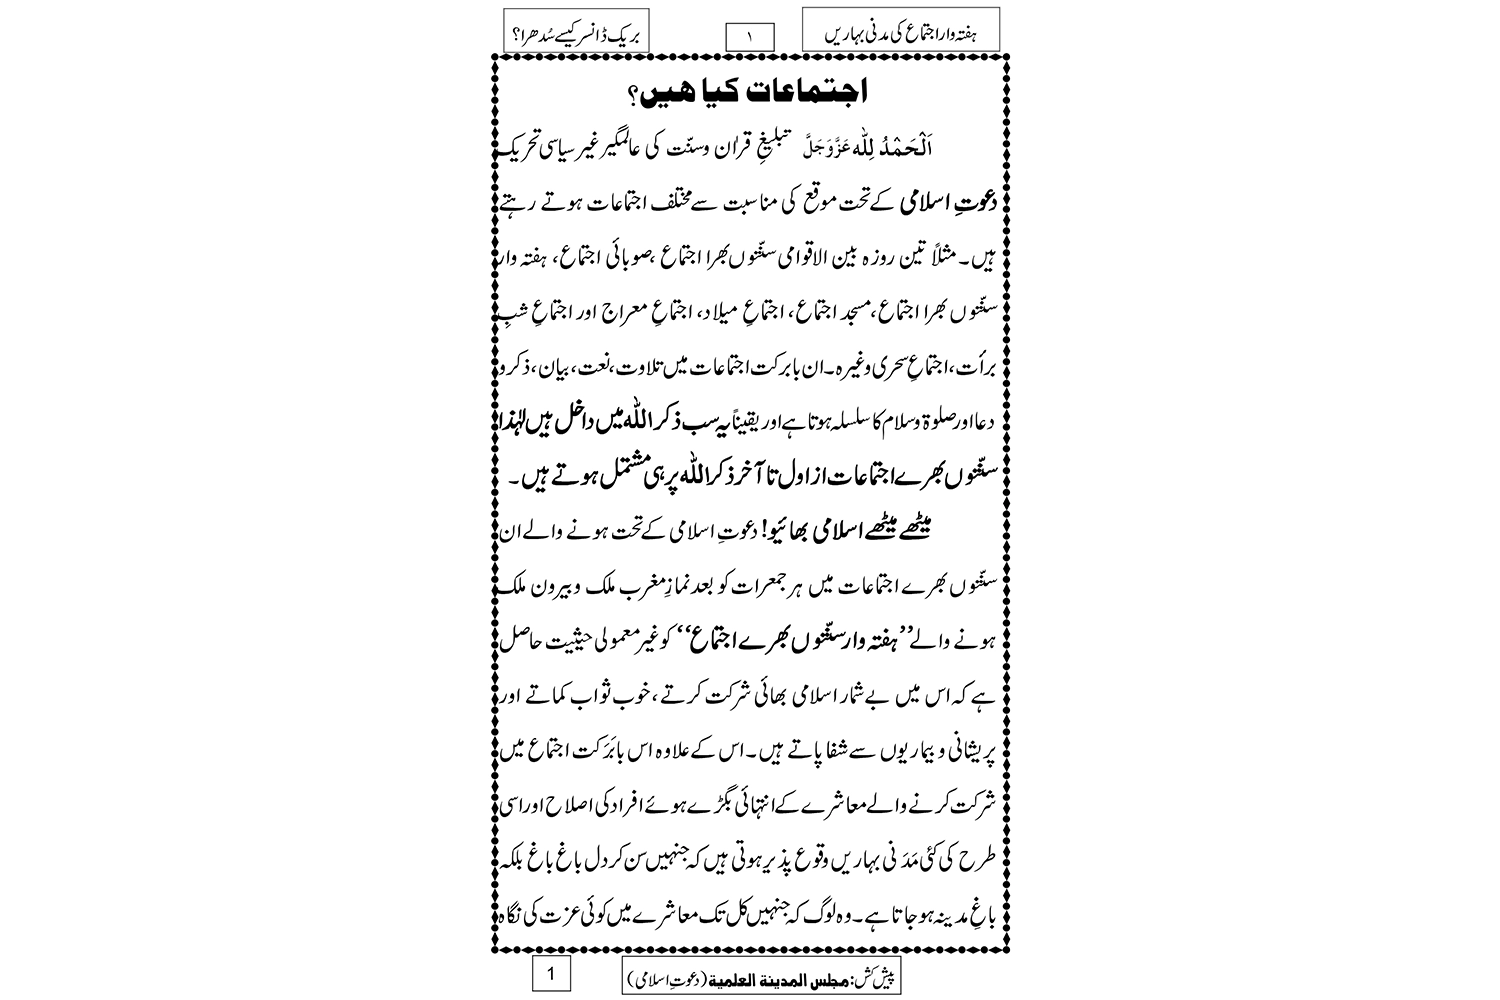 ہفتہ وار اجتماع کی مدنی بہاریں
۱
بریک ڈانسر کیسے سُدھرا؟
اجتماعات کیا ھیں؟
اَلْحَمْدُ لِلّٰہ عَزَّوَجَلَّ تبلیغِ قراٰن وسنّت کی عالمگیر غیر سیاسی تحریک
دعوتِ اسلامی کے تحت موقع کی مناسبت سے مختلف اجتماعات ہوتے رہتے
ہیں۔ مثلاً تین روزہ بین الاقوامی سنّتوں بھرا اجتماع ،صوبائی اجتماع، ہفتہ وار
سنّتوں بھرا اجتماع ،مسجد اجتماع، اجتماعِ میلاد، اجتماعِ معراج اور اجتماعِ شبِ
برأت، اجتماعِ سحری وغیرہ۔ ان بابرکت اجتماعات میں تلاوت، نعت، بیان، ذکر و
دعا اور صلوٰۃ وسلام کا سلسلہ ہوتا ہے اور یقیناً یہ سب ذکر اللّٰہ میں داخل ہیں لہٰذا
سنّتوں بھرے اجتماعات از اول تا آخر ذکر اللّٰہ پر ہی مشتمل ہوتے ہیں ۔
میٹھے میٹھے اسلامی بھائیو! دعوتِ اسلامی کے تحت ہونے والے ان
سنّتوں بھرے اجتماعات میں ہر جمعرات کو بعد نمازِ مغرب ملک و بیرون ملک
ہونے والے ’’ہفتہ وار سنّتوں بھرے اجتماع‘‘ کو غیر معمولی حیثیت حاصل
ہے کہ اس میں بے شمار اسلامی بھائی شرکت کرتے ،خوب ثواب کماتے اور
پریشانی و بیماریوں سے شفا پاتے ہیں۔ اس کے علاوہ اس بابَرَکت اجتماع میں
شرکت کرنے والے معاشرے کے انتہائی بگڑے ہوئے افراد کی اصلاح اور اسی
طرح کی کئی مَدَنی بہاریں وقوع پذیر ہوتی ہیں کہ جنہیں سن کر دل باغ باغ بلکہ
باغِ مدینہ ہوجاتا ہے۔ وہ لوگ کہ جنہیں کل تک معاشرے میں کوئی عزت کی نگاہ
پیش کش: مجلس المدینة العلمیة (دعوتِ اسلامی)
1